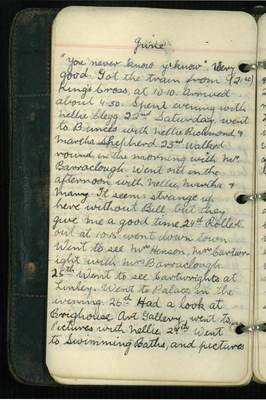 June
"You never know y'know". Very
good. Got the train from
Kings Cross, at 10-10. arrived
about 4-30. Spent evening with
Nellie Clegg. 22nd Saturday went
to Dances with Nellie Richmond &
Martha Shepherd. 23rd Walked
round in the morning with Mr
Barraclough. Went out in the
afternoon with Nellie, Martha &
Many. It seems strange up
here without Bill but they
give me a good time. 24th Rolled
out at 10.15. went down town.
Went to see Mrs Henson, Mrs Cartwr-
ight with Mrs Barraclough
25th Went to see Cartwrights at
Linley. Went to Palace in the
evening. 26th Had a look at
Brighouse Art Gallery, went to
Pictures with Nellie 27th Went
to Swimming Baths, and pictures